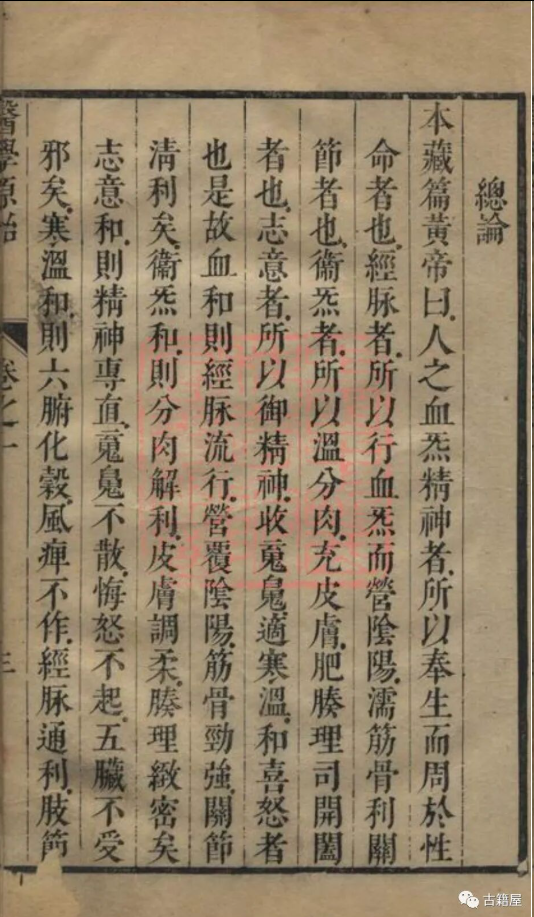 總論
本藏篇黃帝曰人之血炁精神者所以奉生而周於性
命者也經脉者所以行血炁而營陰陽濡筋骨利關
節者也衞炁者所以溫分肉充皮膚肥腠理司開闔
者也志意者所以御精神收䰟鬼適寒溫和喜怒者
也是故血和則經脉流行營覆陰陽筋骨勁強關節
淸利矣衞炁和則分肉解利皮膚調柔腠理緻密矣
志意和則精神專直䰟魄不散悔怒不起五臟不受
邪矣寒溫和則六腑化穀風痺不作經脉通利肢節
醫學原始
卷之一
三
古籍屋